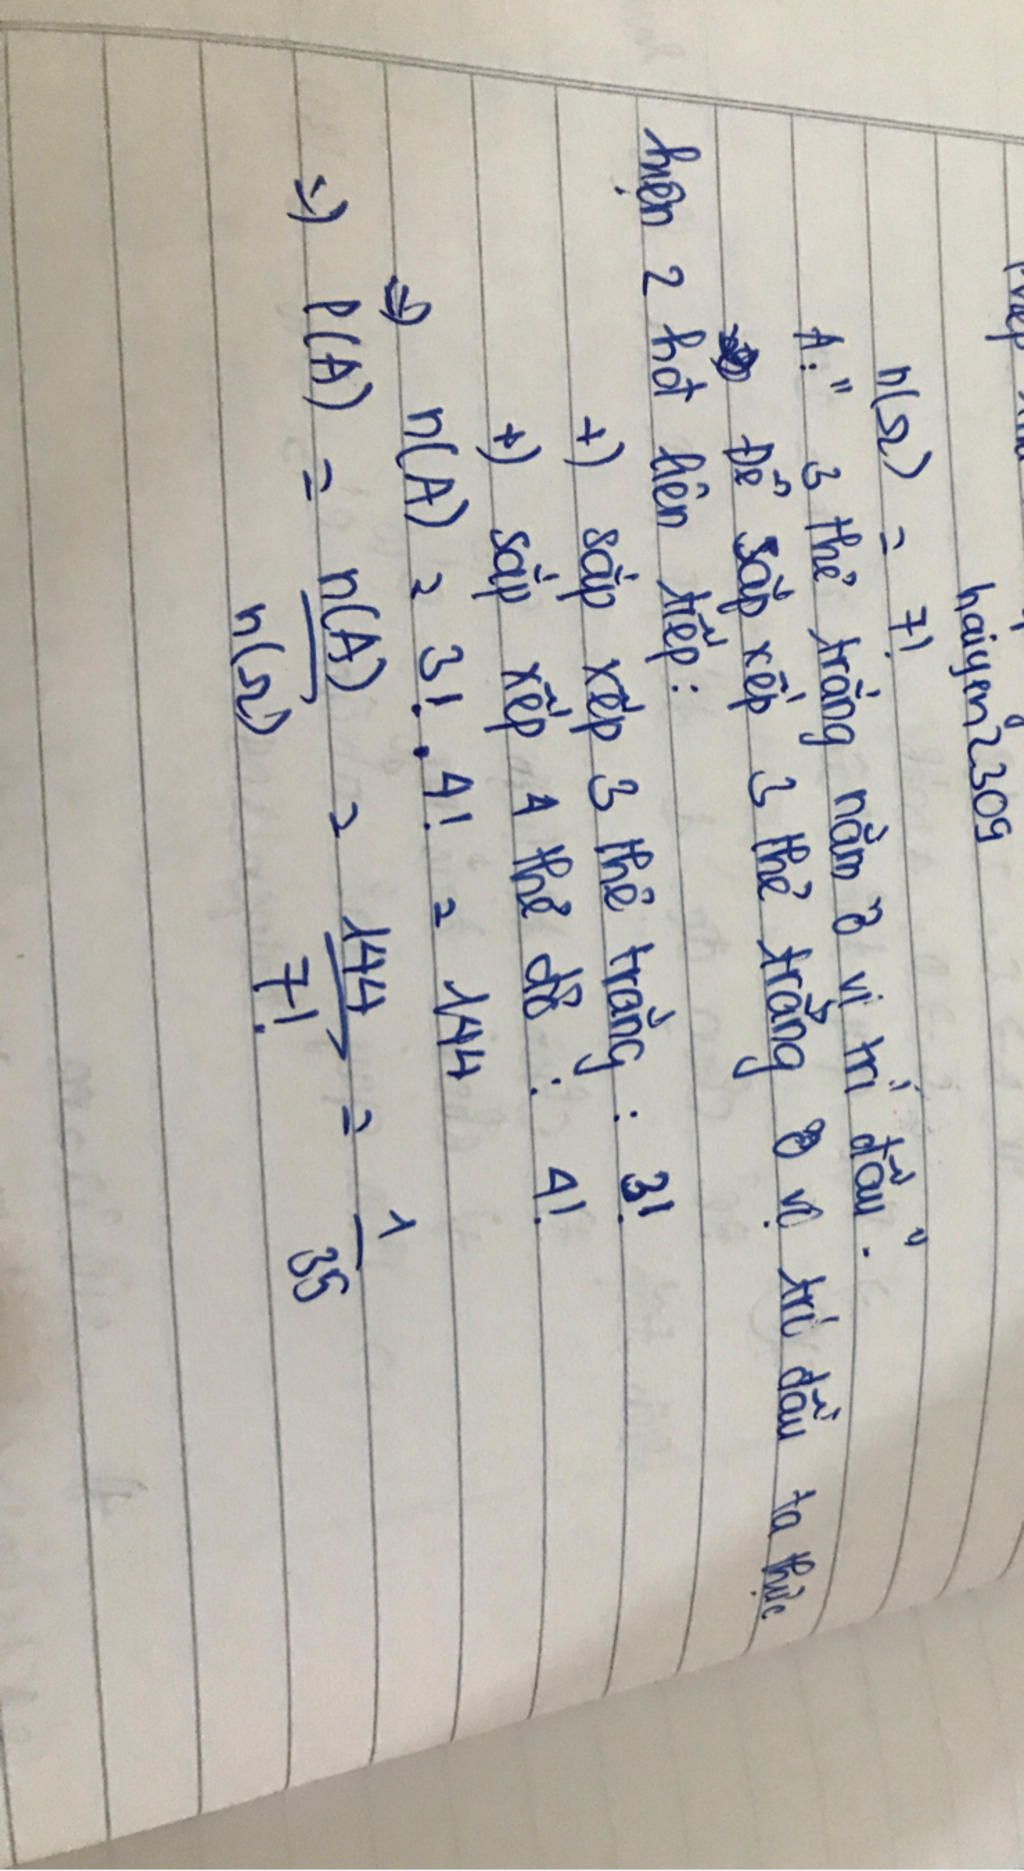 haiyen2309
n(Ω) = 7!
A: " 3 thẻ trắng nằm ở vị trí đầu ".
Để sắp xếp 3 thẻ trắng ở vị trí đầu ta thực
hiện 2 hđ liên tiếp :
+) sắp xếp 3 thẻ trắng : 3!
+) sắp xếp 4 thẻ đỏ : 4!
=> n(A) = 3! . 4! = 144
=> P(A) = n(A) / n(Ω) = 144 / 7! = 1 / 35